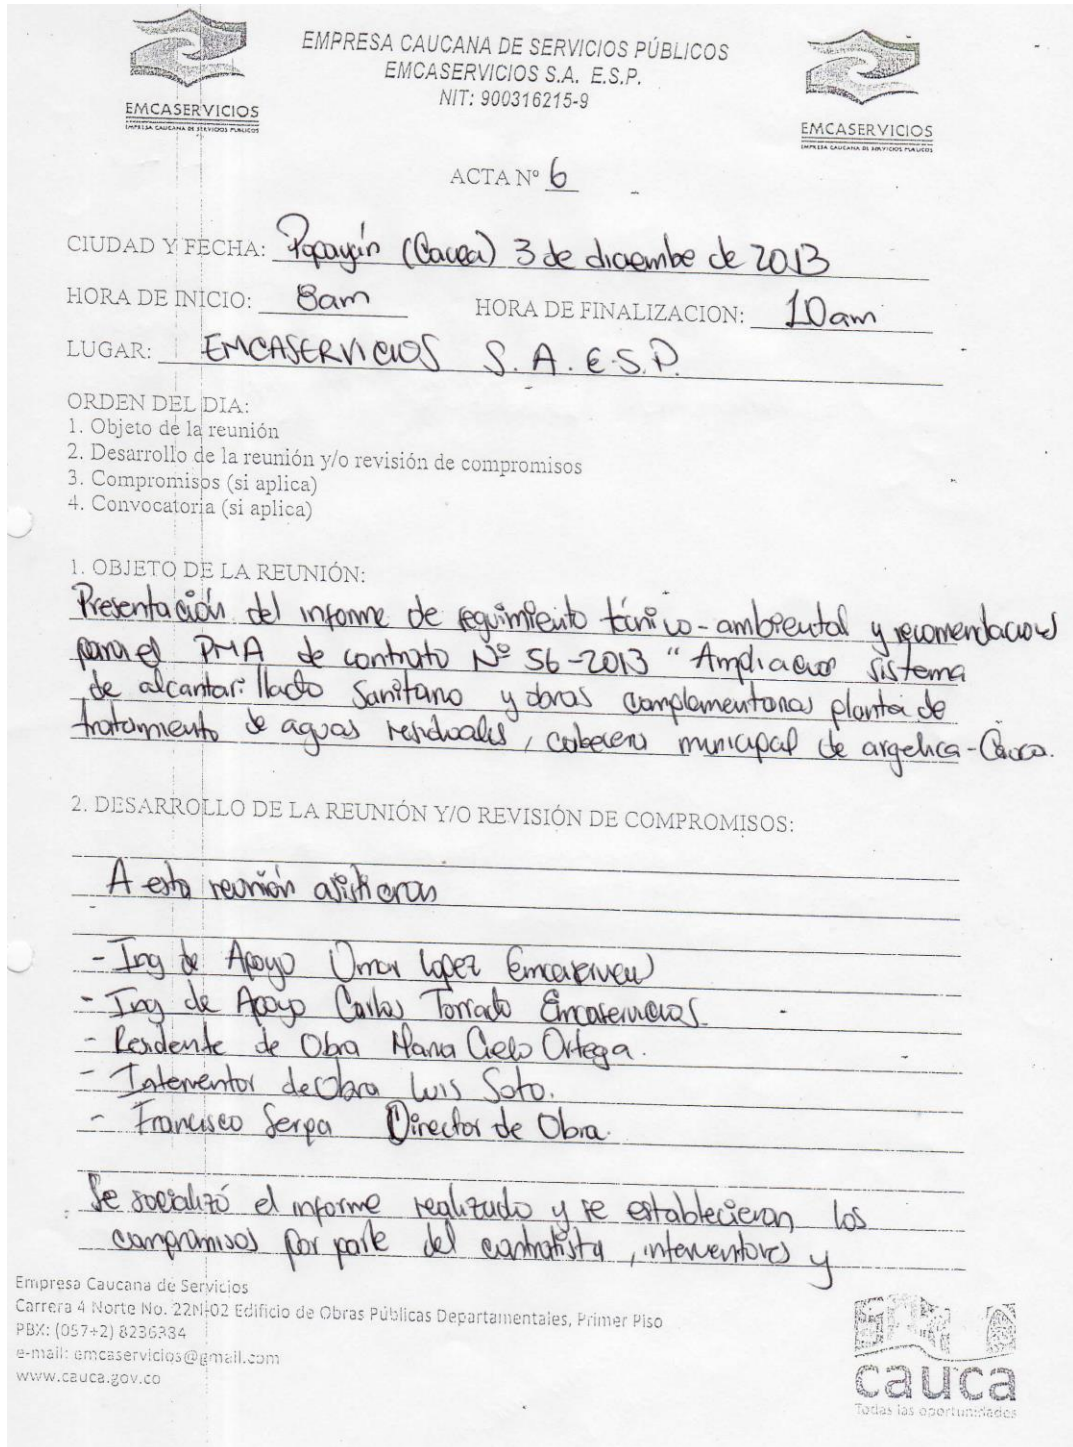 EMPRESA CAUCANA DE SERVICIOS PÚBLICOS
EMCASERVICIOS S.A. E.S.P.
NIT: 900316215-9
EMCASERVICIOS
EMPRESA CAUCANA DE SERVICIOS PUBLICOS
EMCASERVICIOS
EMPRESA CAUCANA DE SERVICIOS PUBLICOS
ACTA Nº 6
CIUDAD Y FECHA: Popayán (Cauca) 3 de diciembe de 2013
HORA DE INICIO: 8am HORA DE FINALIZACION: 10am
LUGAR: EMCASERVICIOS S. A. E.S.P.
ORDEN DEL DIA:
1. Objeto de la reunión
2. Desarrollo de la reunión y/o revisión de compromisos
3. Compromisos (si aplica)
4. Convocatoria (si aplica)
1. OBJETO DE LA REUNIÓN:
Presentación del informe de seguimiento técnico-ambiental y recomendaciones
para el PMA de contrato Nº 56-2013 "Ampliacion sistema
de alcantarillado Sanitario y obras complementarias planta de
tratamiento de aguas residuales, cabecera municipal de argelia-Cauca.
2. DESARROLLO DE LA REUNIÓN Y/O REVISIÓN DE COMPROMISOS:
A esta reunión asistieron
- Ing de Apoyo Omar Lopez Emcaservicios
- Ing de Apoyo Carlos Torrado Emcaservicios.
- Residente de Obra Maria Cielo Ortega.
- Interventor de Obra Luis Soto.
- Francisco Serpa Director de Obra.
Se socializó el informe realizado y se establecieron los
compromisos por parte del contratista, interventores y
Empresa Caucana de Servicios
Carrera 4 Norte No. 22N-02 Edificio de Obras Públicas Departamentales, Primer Piso
PBX: (057+2) 8236334
e-mail: emcaservicios@gmail.com
www.cauca.gov.co
cauca
Todas las oportunidades